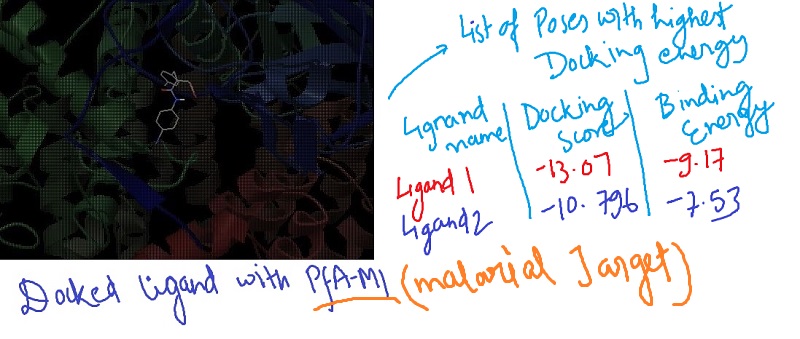 List of Poses with highest
Docking energy
Ligrand name
Docking Score
Binding Energy
Ligand 1
-13.07
-9.17
Ligand2
-10.796
-7.53
Docked ligand with PfA-M1 (malarial Target)